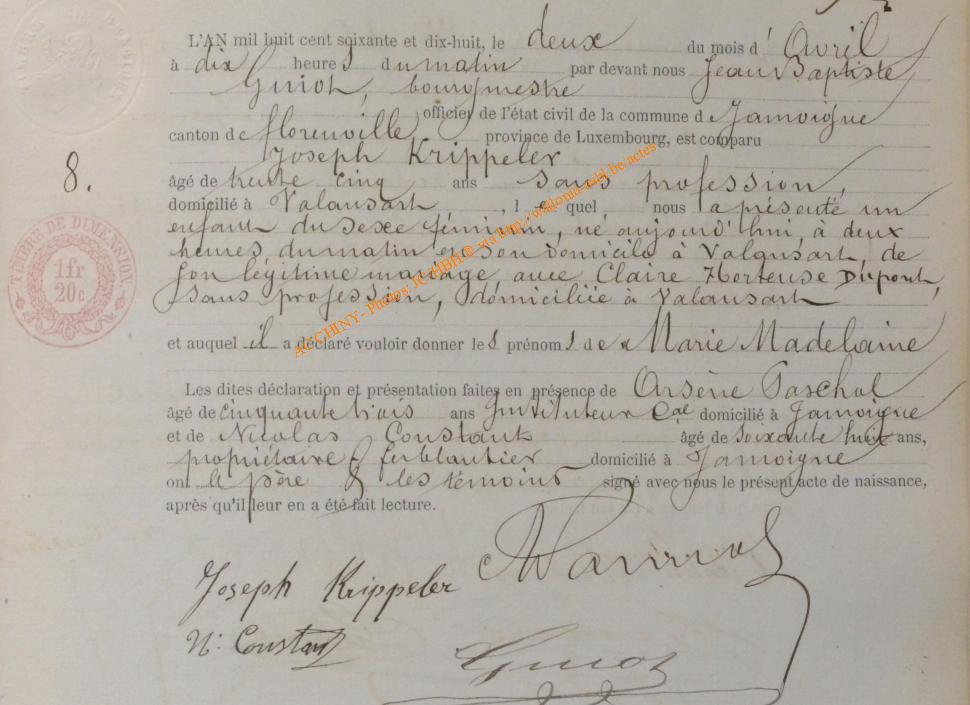 L'AN mil huit cent soixante et dix-huit, le deux du mois d'Avril
à dix heures du matin par devant nous Jean Baptiste
Guiot, bourgmestre
officier de l'état civil de la commune de Jamoigne
canton de florenville province de Luxembourg, est comparu
Joseph Krippeler
8.
âgé de trente cinq ans sans profession,
domicilié à Valansart, lequel, nous a présenté un
enfant du sexe féminin, né aujourd'hui, à deux
heures, du matin en son domicile à Valansart, de
son légitime mariage avec Claire Hortense Dupont,
sans profession, domiciliée à Valansart
et auquel il a déclaré vouloir donner les prénoms de Marie Madelaine
Les dites déclaration et présentation faites en présence de Arsène Paschal
âgé de cinquante trois ans Instituteur Cal domicilié à Jamoigne
et de Nicolas Constant âgé de soixante huit ans,
propriétaire & ferblantier domicilié à Jamoigne
ont le père & les témoins signé avec nous le présent acte de naissance,
après qu'il leur en a été fait lecture.
Joseph Krippeler
N: Constant
Guiot
TIMBRE DE DIMENSION.
1fr
20c
ACCHINY - Photos JCHBH © via http://wallonia-asbl.be/actes